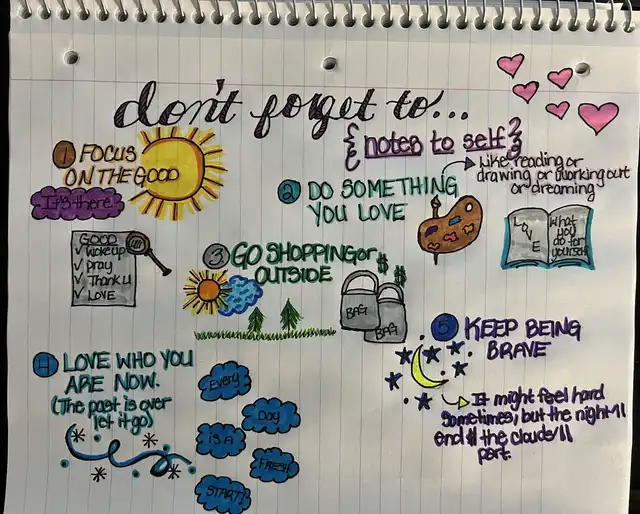 don't forget to...
{notes to self}
1 FOCUS
ON THE GOOD
It's there
GOOD
✓ wake up
✓ pray
✓ Thank u
✓ LOVE
2 DO SOMETHING
YOU LOVE
Like reading or
drawing or working out
or dreaming
LOVE
What
you
do for
yourself
3 GO SHOPPING or
OUTSIDE
$ $
BAG
BAG
4 LOVE WHO YOU
ARE NOW.
(The past is over
let it go)
Every
Day
IS A
FRESH
START!
5 KEEP BEING
BRAVE
It might feel hard
Sometimes, but the night'll
end & the clouds'll
part.